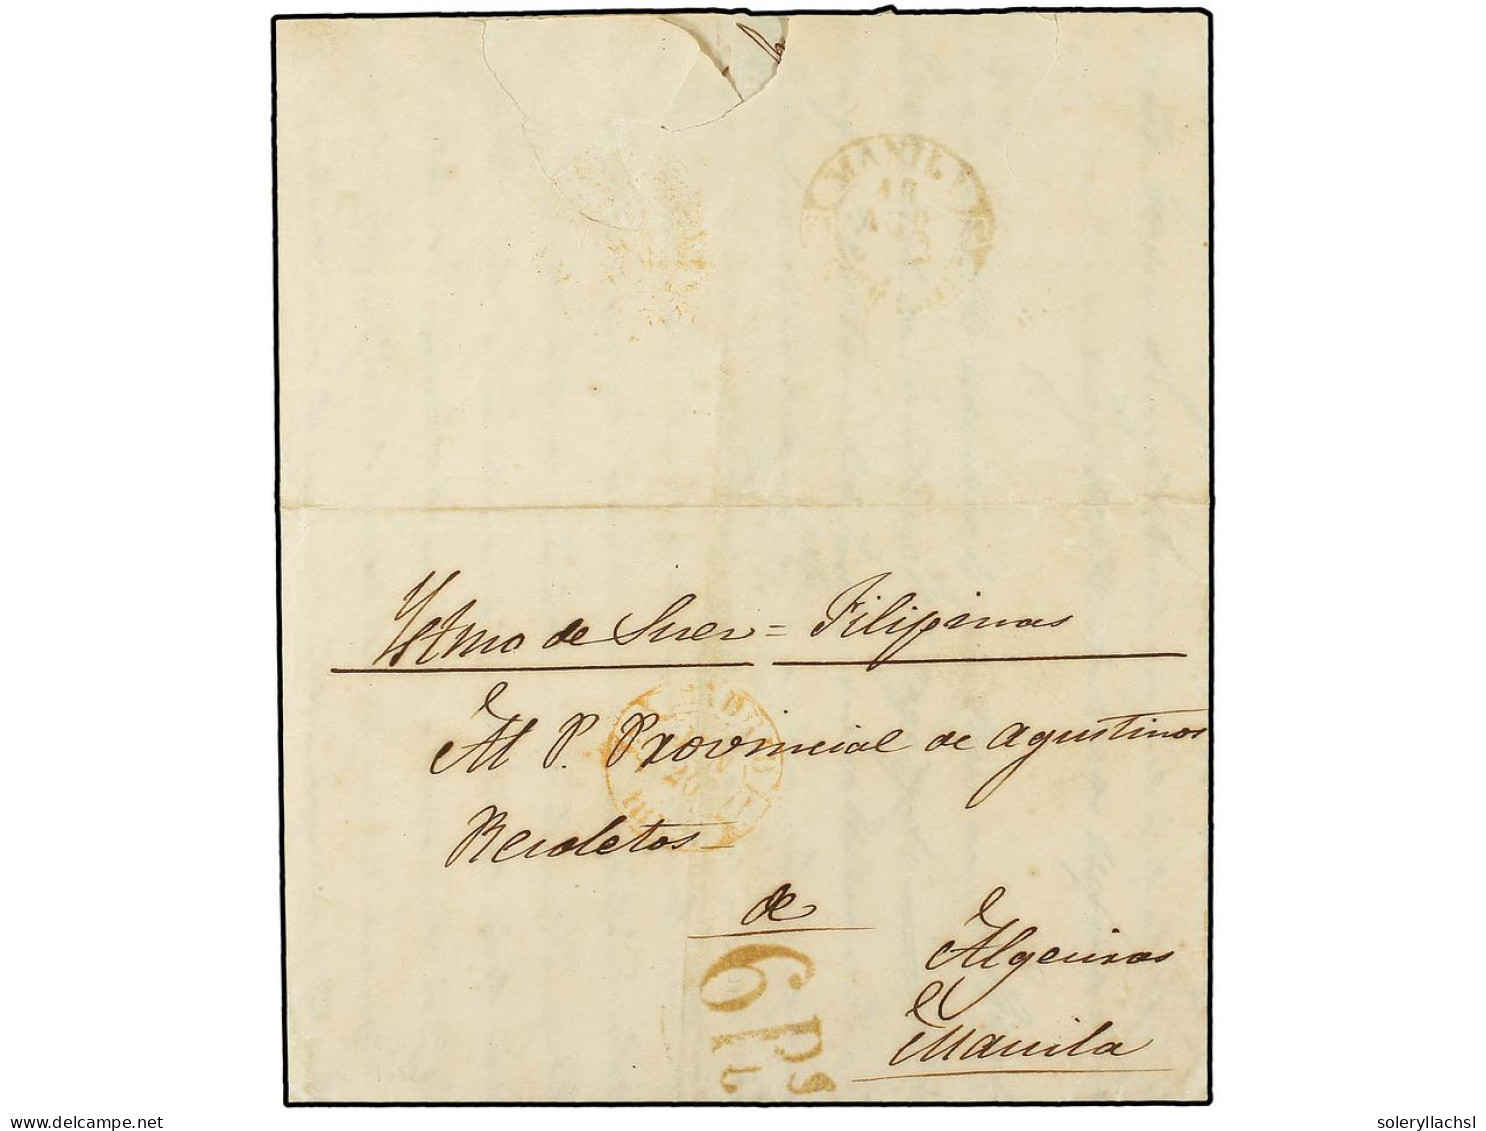 MANILA
18
AGO
Ystmo de Suez = Filipinas
Al P. Provincial de Agustinos
Recoletos
de
Algeciras
Manila
6 Rs
delcampe.net
soleryllachsl